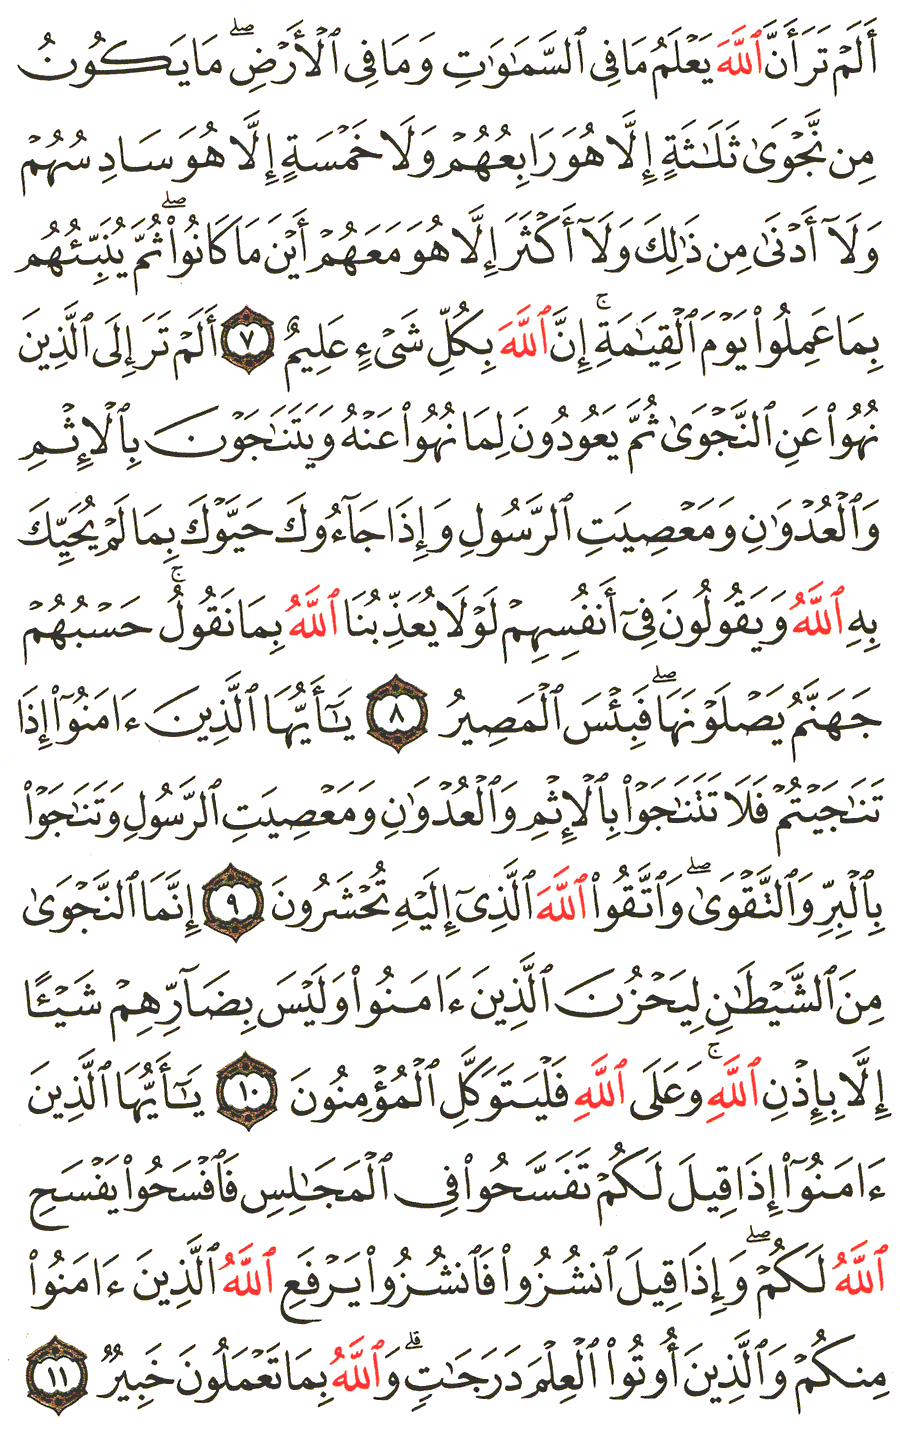 أَلَمۡ تَرَ أَنَّ ٱللَّهَ يَعۡلَمُ مَا فِي ٱلسَّمَٰوَٰتِ وَمَا فِي ٱلۡأَرۡضِۖ مَا يَكُونُ
مِن نَّجۡوَىٰ ثَلَٰثَةٍ إِلَّا هُوَ رَابِعُهُمۡ وَلَا خَمۡسَةٍ إِلَّا هُوَ سَادِسُهُمۡ
وَلَآ أَدۡنَىٰ مِن ذَٰلِكَ وَلَآ أَكۡثَرَ إِلَّا هُوَ مَعَهُمۡ أَيۡنَ مَا كَانُواْۖ ثُمَّ يُنَبِّئُهُم
بِمَا عَمِلُواْ يَوۡمَ ٱلۡقِيَٰمَةِۚ إِنَّ ٱللَّهَ بِكُلِّ شَيۡءٍ عَلِيمٌ ٧ أَلَمۡ تَرَ إِلَى ٱلَّذِينَ
نُهُواْ عَنِ ٱلنَّجۡوَىٰ ثُمَّ يَعُودُونَ لِمَا نُهُواْ عَنۡهُ وَيَتَنَٰجَوۡنَ بِٱلۡإِثۡمِ
وَٱلۡعُدۡوَٰنِ وَمَعۡصِيَتِ ٱلرَّسُولِ وَإِذَا جَآءُوكَ حَيَّوۡكَ بِمَا لَمۡ يُحَيِّكَ
بِهِ ٱللَّهُ وَيَقُولُونَ فِيٓ أَنفُسِهِمۡ لَوۡلَا يُعَذِّبُنَا ٱللَّهُ بِمَا نَقُولُۚ حَسۡبُهُمۡ
جَهَنَّمُ يَصۡلَوۡنَهَاۖ فَبِئۡسَ ٱلۡمَصِيرُ ٨ يَٰٓأَيُّهَا ٱلَّذِينَ ءَامَنُوٓاْ إِذَا
تَنَٰجَيۡتُمۡ فَلَا تَتَنَٰجَوۡاْ بِٱلۡإِثۡمِ وَٱلۡعُدۡوَٰنِ وَمَعۡصِيَتِ ٱلرَّسُولِ وَتَنَٰجَوۡاْ
بِٱلۡبِرِّ وَٱلتَّقۡوَىٰۖ وَٱتَّقُواْ ٱللَّهَ ٱلَّذِيٓ إِلَيۡهِ تُحۡشَرُونَ ٩ إِنَّمَا ٱلنَّجۡوَىٰ
مِنَ ٱلشَّيۡطَٰنِ لِيَحۡزُنَ ٱلَّذِينَ ءَامَنُواْ وَلَيۡسَ بِضَآرِّهِمۡ شَيۡـًٔا
إِلَّا بِإِذۡنِ ٱللَّهِۚ وَعَلَى ٱللَّهِ فَلۡيَتَوَكَّلِ ٱلۡمُؤۡمِنُونَ ١٠ يَٰٓأَيُّهَا ٱلَّذِينَ
ءَامَنُوٓاْ إِذَا قِيلَ لَكُمۡ تَفَسَّحُواْ فِي ٱلۡمَجَٰلِسِ فَٱفۡسَحُواْ يَفۡسَحِ
ٱللَّهُ لَكُمۡۖ وَإِذَا قِيلَ ٱنشُزُواْ فَٱنشُزُواْ يَرۡفَعِ ٱللَّهُ ٱلَّذِينَ ءَامَنُواْ
مِنكُمۡ وَٱلَّذِينَ أُوتُواْ ٱلۡعِلۡمَ دَرَجَٰتٖۗ وَٱللَّهُ بِمَا تَعۡمَلُونَ خَبِيرٞ ١١